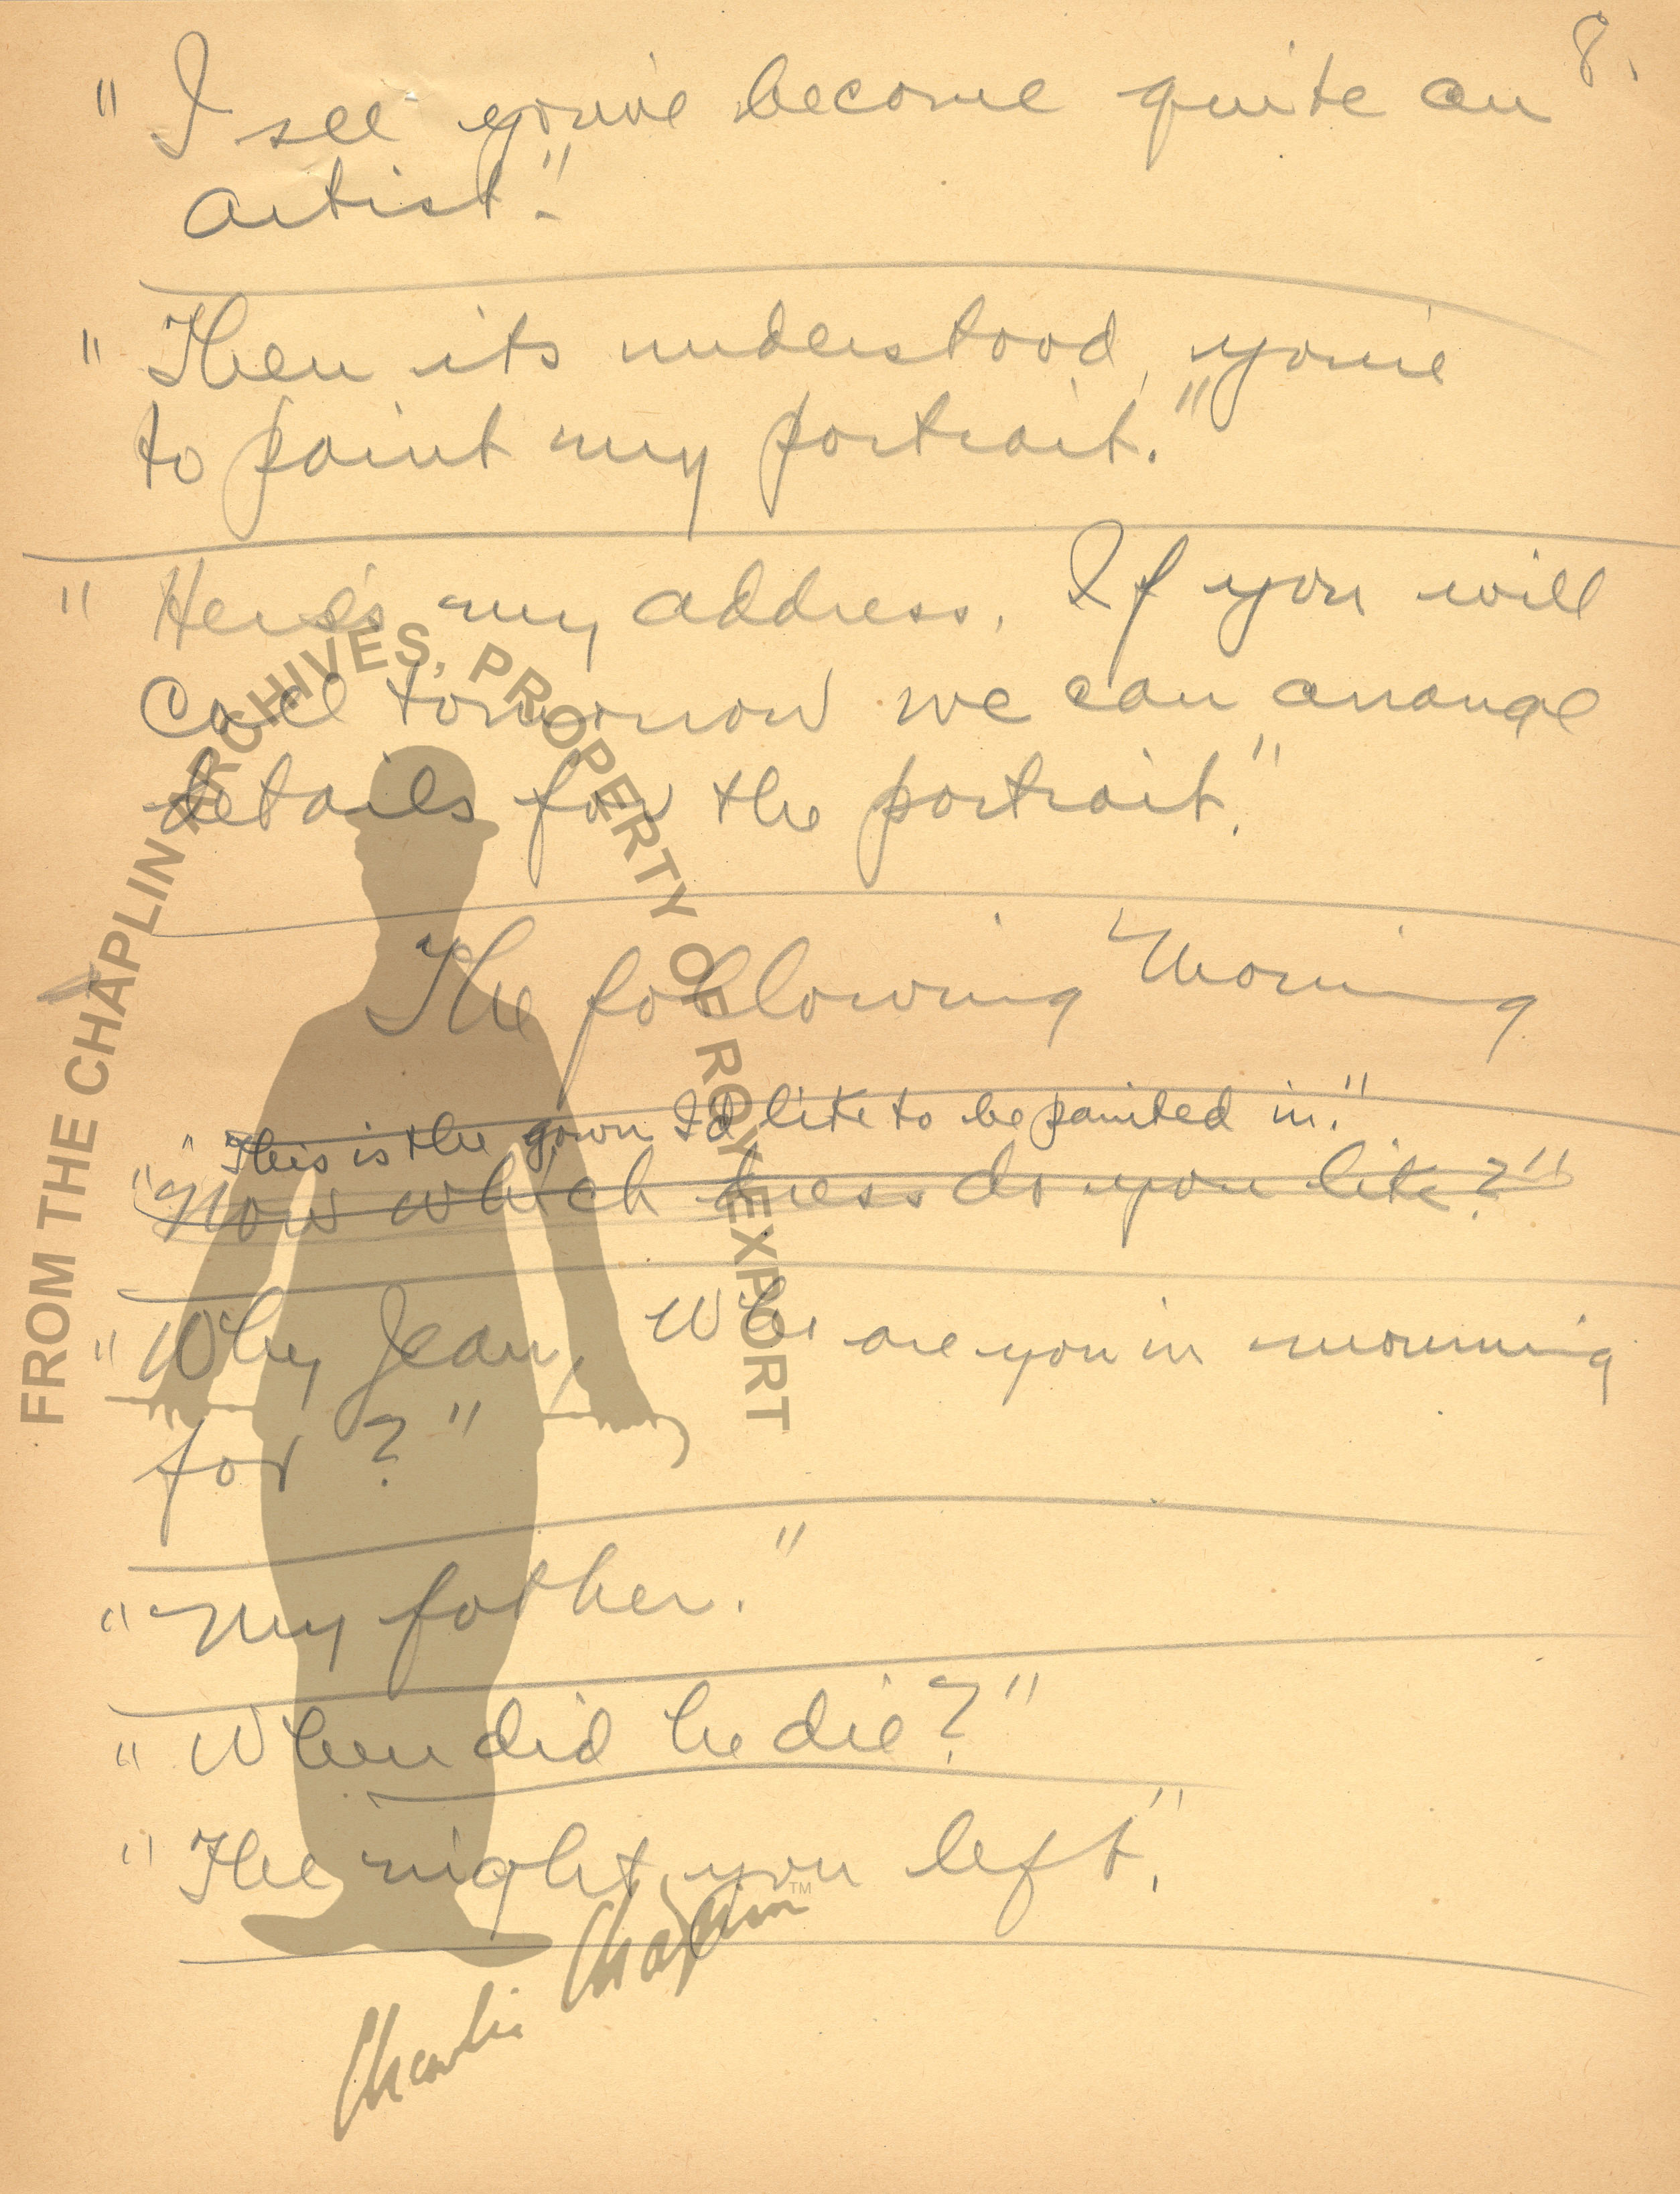 8.
" I see you've become quite an
artist."
" Then its understood, you're
to paint my portrait."
" Here's my address. If you will
Call tomorrow we can arrange
details for the portrait."
The following Morning
" This is the gown I'd like to be painted in."
"Now which dress do you like?"
" Why Jean, Who are you in mourning
for?"
" My father."
" When did he die?"
" The night you left."
FROM THE CHAPLIN ARCHIVES, PROPERTY OF ROY EXPORT
Charlie Chaplin ™